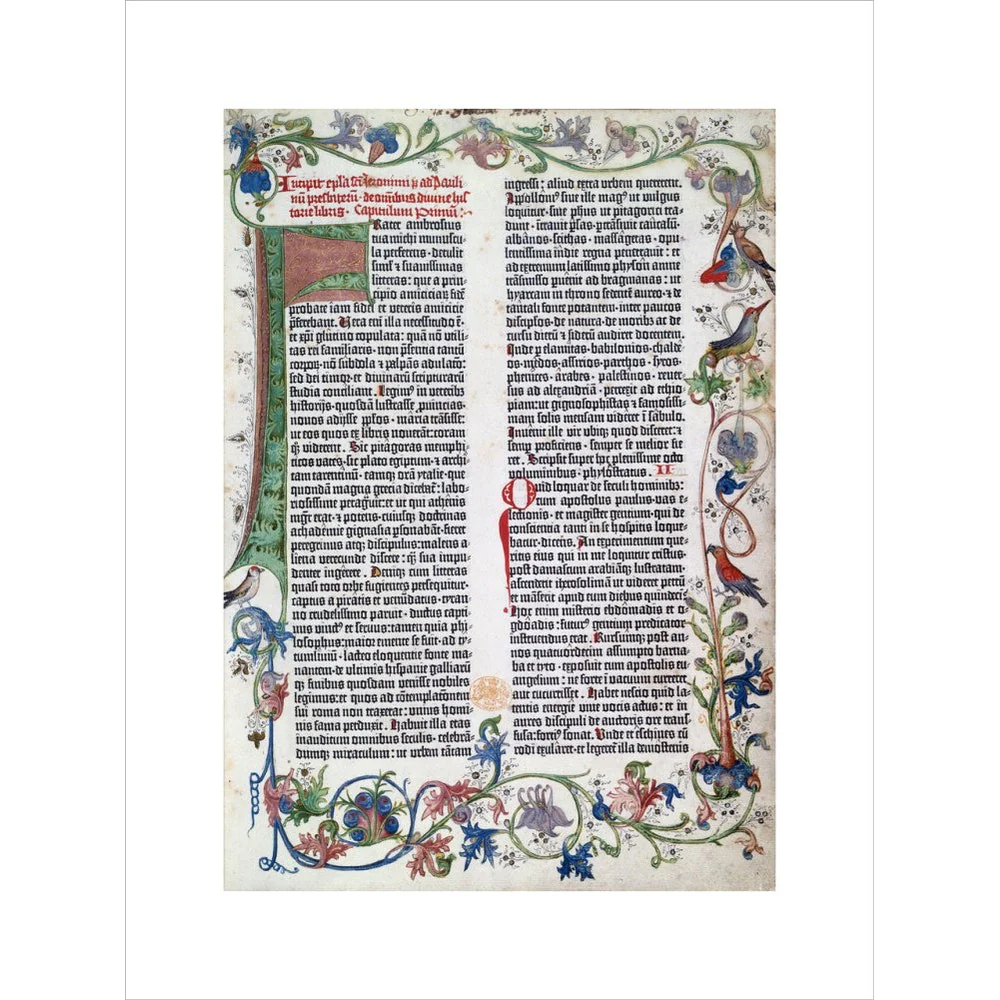 Incipit epl̃a sc̃i Jeronimi p̄ ad Pauli
nū presbiterū · de om̄ibus diuine his
torie libris · Capitulum Primū :
Frater ambrosius
tua michi munuscu
la perferens · detulit
siml̕ ⁊ suauissimas
litteras: que a prin
cipio amiciciaꝝ · fidē
probate iam fidei et veteris amicicie
p̄ferebant. Vera em̄ illa necessitudo ē ·
et xp̄i glutino copulata: quā nō utili
tas rei familiaris · non p̄sentia tantū
corpoꝝ · nō subdola ⁊ palpās adulac̄o:
sed dei timor · et diuinarū scripturarū
studia conciliant. Legim⁹ in veterib⁹
historijs · quosdā lustrasse ꝓuincias ·
nouos adijsse ppl̄os · maria trāsisse:
ut eos quos ex libris nouerāt: coram
q̄ viderent. Sic pitagoras memphi
ticos vates · sic plato egiptum · ⁊ archi
tam tarentinū · eamq̄ oram ytalie · que
quondā magna grecia dicebat̄: labo
riosissime peragrauit: et ut qui athenis
mgr̄ erat · ⁊ potens · cuiusq̄ doctrinas
achademie gignasia ꝑsonabāt · fieret
peregrinus atq̄ discipulus: malens a
liena verecunde discere: qꝫ sua impu
denter ingerere. Deniq̄ cum litteras
quasi toto orbe fugientes persequitur ·
captus a piratis et venūdatus · tyran
no crudelissimo paruit · ductus capti
uus vinct⁹ et seruus: tamen quia phi
losophus: maior emente se fuit · ad ty-
tumliuiū · lacteo eloquentie fonte ma
nantem · de ultimis hispanie galliarū
q̄ finibus quosdam venisse nobiles
legimus: et quos ad cōtemplationem
sui roma non traxerat: unius homi
nis fama perduxit. Habuit illa etas
inauditum omnibus seculis · celebrā
dumq̄ miraculum: ut urbem tātam
ingressi: aliud extra urbem quererent.
Appolloni⁹ siue ille mag⁹ ut vulgus
loquitur · siue ph̄us · ut pitagorici tra
dunt · intrauit ꝑsas · ꝑtrāsiuit caucasū ·
albānos · scithas · massagetas · opu
lentissima indie regna penetrauit: et
ad extremum latissimo physon amne
trāsmisso ꝑuenit ad bragmanas: ut
hyarcam in throno sedentē aureo · ⁊ de
tantali fonte potantem · inter paucos
discipl̄os · de natura · de moribꝫ ac de
cursu dierū ⁊ siderū audiret docentem.
Inde ꝑ elamitas · babilonios · chalde
os · medos · assirios · parthos · syros ·
phenices · arabes · palestinos · reuer
sus ad alexandriā · perrexit ad ethio
piam: ut gignosophistas ⁊ famosissi
mam solis mensam videret ī sabulo.
Inuenit ille vir ubiq̄ quod disceret: ⁊
semp̄ proficiens · semper se melior fie
ret. Scripsit super hoc plenissime octo
voluminibus · phylostratus. II
Quid loquar de seculi hominibꝫ:
cum apostolus paulus · vas e
lectionis · et magister gentium · qui de
conscientia tanti in se hospitis loque
batur · dicens. An experimentum que
ritis eius qui in me loquitur cristus ·
post damascum arabiāq̄ lustratam:
ascenderit iherosolimā ut videret petrū
et māserit apud eum diebus quindeci.
Hoc enim misterio ebdōmadis et o
gdoadis: futur⁹ gentium predicator
instruendus erat. Rursumq̄ post an
nos quatuordecim assumpto barna
ba et tyto · exposuit cum apostolis eu
angelium: ne forte ī vacuum curreret
aut cucurrisset. Habet nescio quid la
tentis energie viue vocis actus: et in
aures discipuli de auctoris ore trans
fusa: forci⁹ sonat. Unde et eschines cū
rodi exularet · et legeret̄ illa demosteris